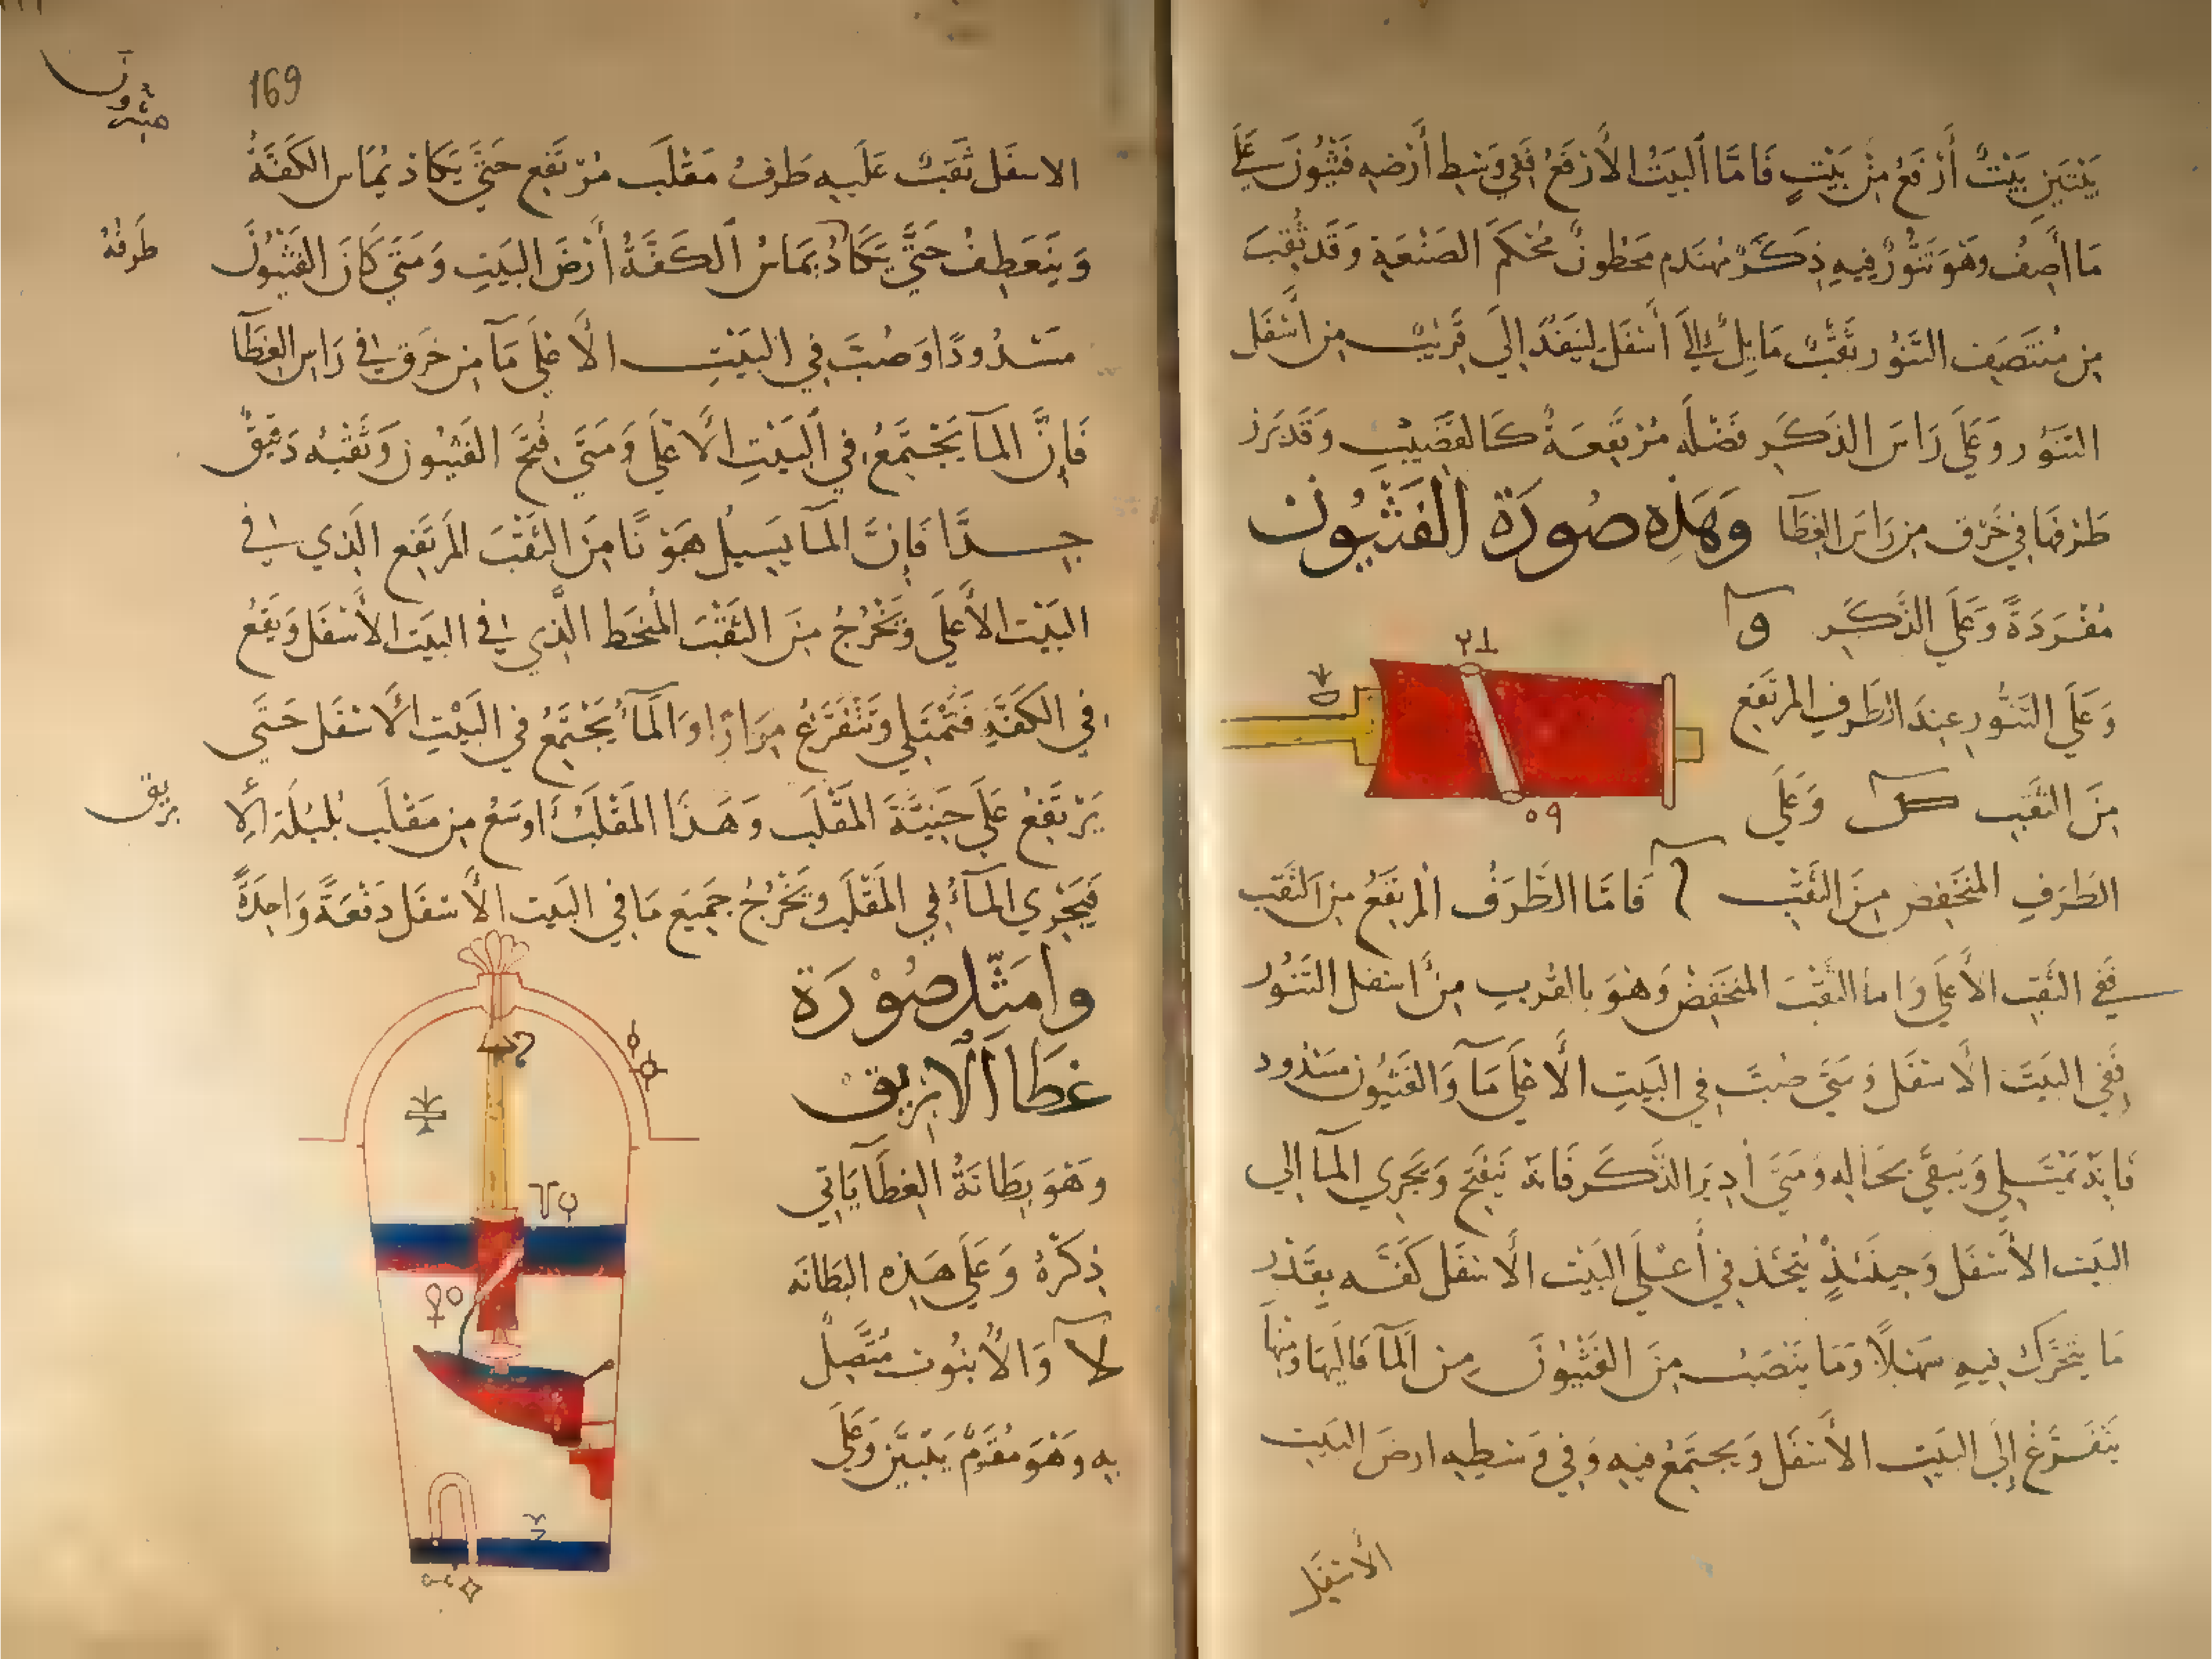 بيتين بيتٌ أرفعُ من بيتٍ فاما البيتُ الأرفعُ ففي وسط أرضه فثيون على
ما أصفُ وهو تنّورٌ فيه ذكرٌ مهندم مخطونٌ محكم الصنعة وقد ثقب
من منتصف التنور ثقبٌ مايلٌ إلى أسفل لينفذ إلى قريب من أسفل
التنور وعلى راس الذكر فضلة مرتفعةٌ كالقضيب وقد برز
طرفها في خرق من راس الغطآ وهذه صورة الفثيون
مفردةً وعلى الذكر و
وعلى التنور عند الطرف المرتفع
من الثقب ك وعلى
الطرف المنخفض من الثقب فاما الطرف المرتفعُ من الثقب
ففي الثقب الأعلى واما الثقب المنخفض وهو بالقرب من أسفل التنور
ففي البيت الأسفل ومتى صُبّ في البيت الأعلى مآ والفثيون مسدود
فانه يمتلي ويبقى بحاله ومتى أدير الذكر فانه ينفتح ويجري المآ إلي
البيت الأسفل وحينئذٍ يُتخذ في أعلى البيت الأسفل كفّه بقدر
ما يتحرك فيه سهلًا وما ينصب من الفثيون من المآ فاليها ومنها
يتفرغ إلى البيت الأسفل ويجتمع فيه وفي وسطه ارض البيت
الأسفل
169
الاسفل ثقبٌ عليه طرف مقلب مرتفع حتى يكاد يماس الكفة
طرفه
وينعطف حتى يكاد يماس الكفةُ أرض البيت ومتى كان الفثيون
مسدودًا وصُبّ في البيت الأعلى مآ من خرق في راس الغطآ
فإنّ المآ يجتمعُ في البيت الأعلى ومتى فُتح الفثيون وثقبُه دقيق
جدًّا فإنّ المآ يسيل هونًا من الثقب المرتفع الذي في
البيت الأعلى ويخرجُ من الثقب المنحط الذي في البيت الأسفل ويقع
في الكفّة فتمتلي وتتفرغ مرارًا والمآ يجتمعُ في البيت الأسفل حتى
يرتفع على حنيّة المقلب وهذا المقلبُ اوسعُ من مقلب بُلبُلة الا
بريق
فيجري المآءُ في المقلب ويخرجُ جميع ما في البيت الأسفل دفعةً واحدةً
وامثل صورة
غطا الابريق
وهو بطانةُ الغطآ ياتي
ذكرُه وعلى هذه البطانه
لا والانبوب متّصلٌ
به وهو مقوّم بيتين وعلى